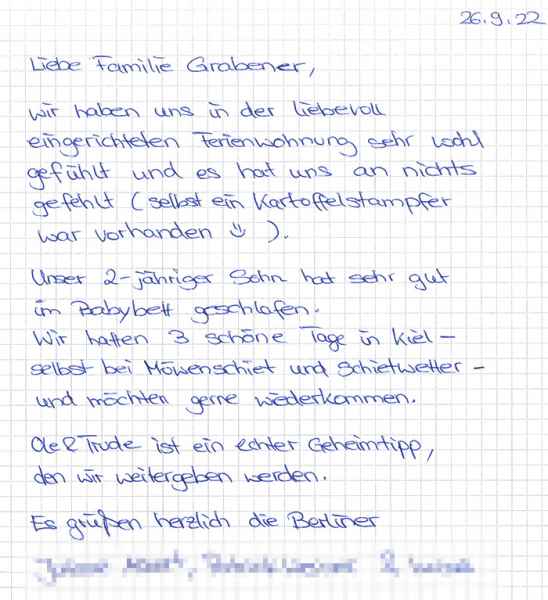 26.9.22
Liebe Familie Grabener,
wir haben uns in der liebevoll
eingerichteten Ferienwohnung sehr wohl
gefühlt und es hat uns an nichts
gefehlt (selbst ein Kartoffelstampfer
war vorhanden ☺ ).
Unser 2-jähriger Sohn hat sehr gut
im Babybett geschlafen.
Wir hatten 3 schöne Tage in Kiel –
selbst bei Möwenschiet und Schietwetter –
und möchten gerne wiederkommen.
Ole & Trude ist ein echter Geheimtipp,
den wir weitergeben werden.
Es grüßen herzlich die Berliner